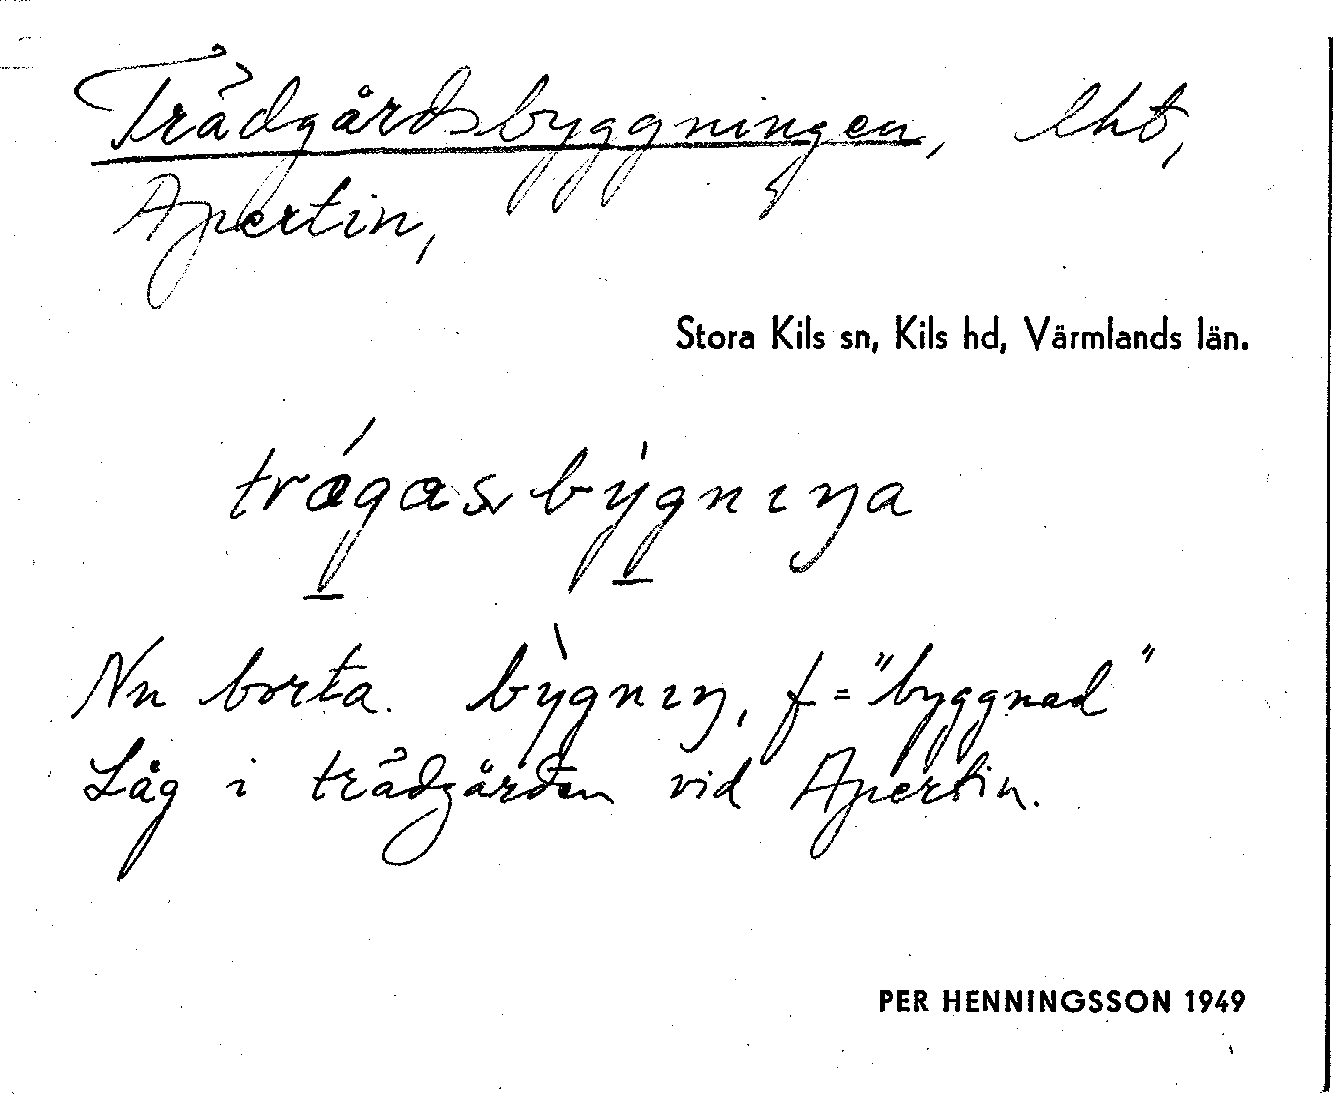 Trädgårdsbyggningen, lht,
Apertin,
Stora Kils sn, Kils hd, Värmlands län.
trǽgas býgnıŋa
Nu borta. bỳgnıŋ, f = "byggnad"
Låg i trädgården vid Apertin.
PER HENNINGSSON 1949